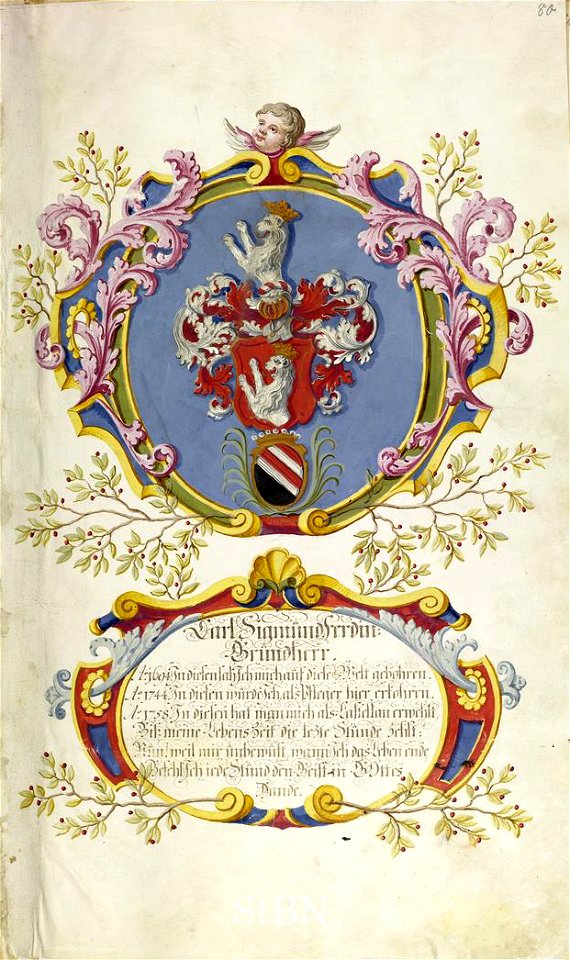 80
Carl Sigmund Ferdin:
Grundherr.
A: 1694 In diesen sich mich auf diese Welt gebohren.
A: 1744 In diesen würd Ich als Pfleger hier erkohren.
A: 1758 In diesen hat man mich als Castellan erwehlt
Biß meine Lebens Zeit die lezte Stunde zehlt.
Nun weil mir unbewust, wann Ich das Leben ende
Befehl Ich jede Stund den Geist in Gottes
Hände.
StBN